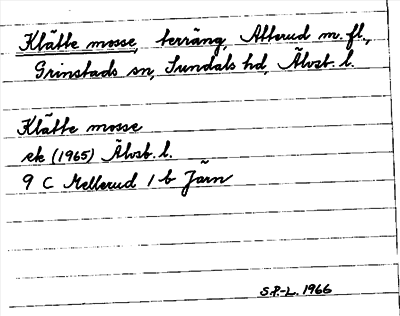 Klätte mosse, terräng, Atterud m. fl.,
Grinstads sn, Sundals hd, Älvsb. l.
Klätte mosse
ek (1965) Älvsb. l.
9 C Mellerud 1 b Järn
S.P-L. 1966